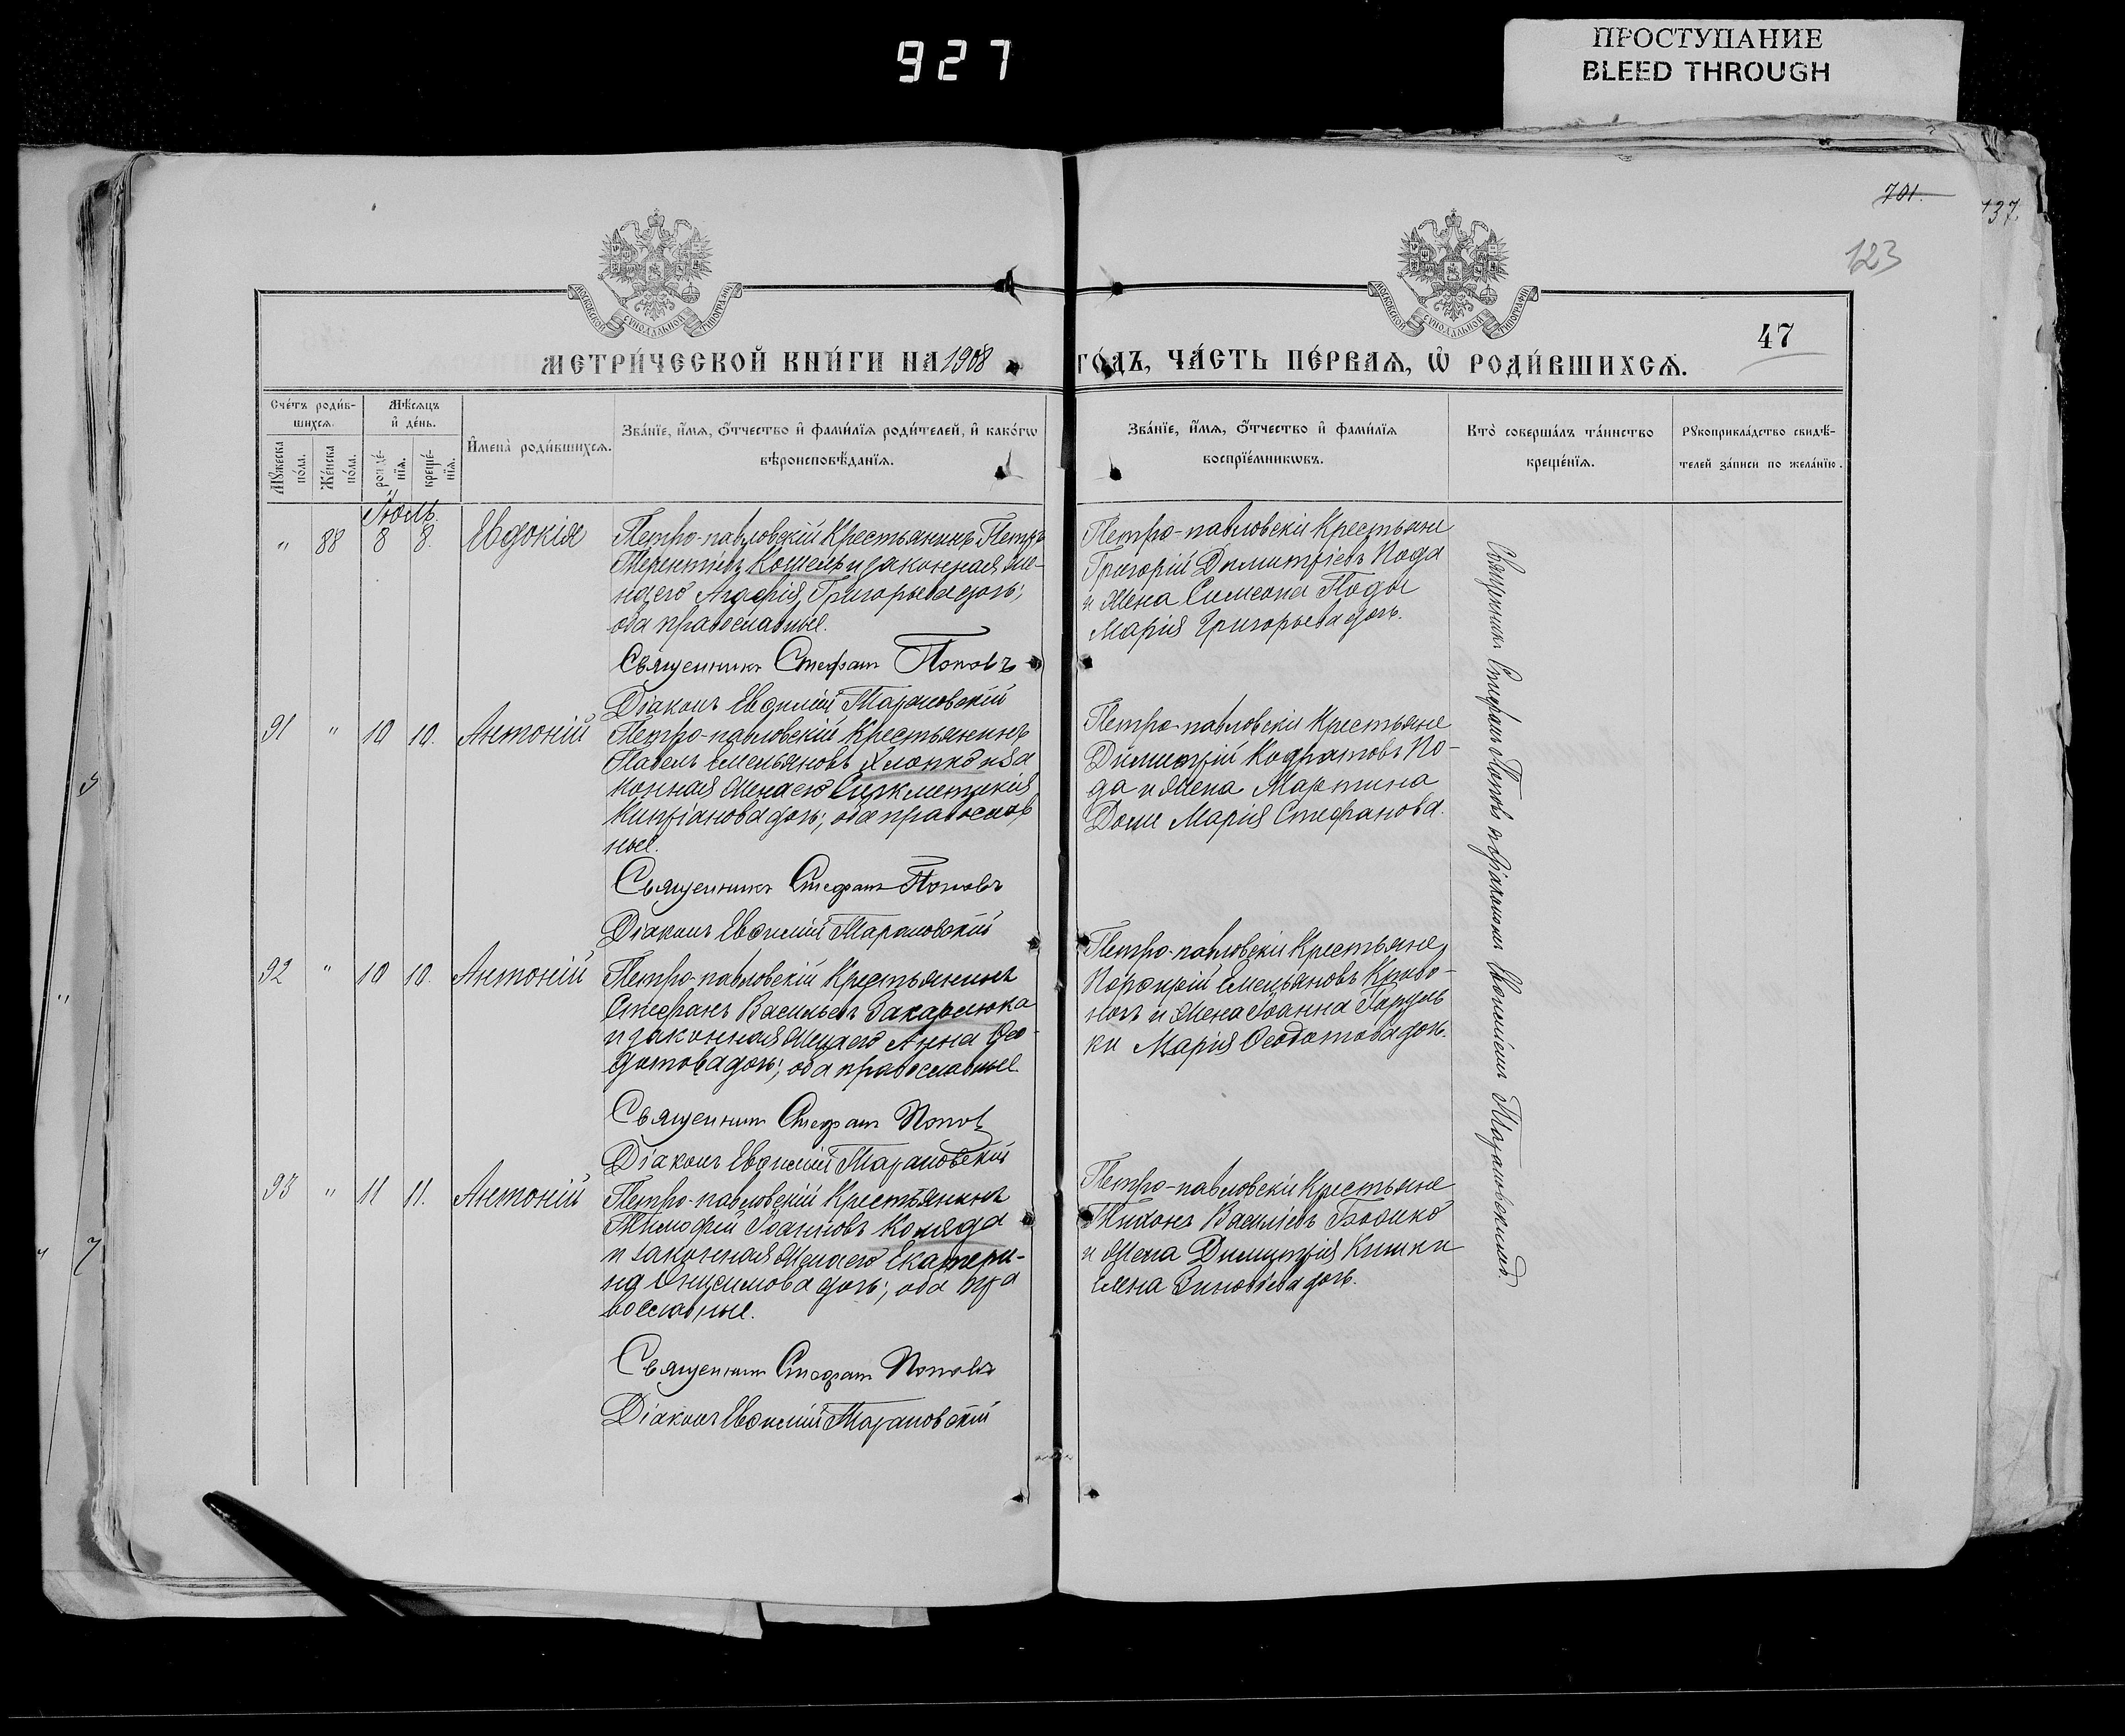 927
ПРОСТУПАНИЕ
BLEED THROUGH
701.
137.
123
47
МОСКОВСКОЙ СѴНОДАЛЬНОЙ ТИПОГРАФИИ
МОСКОВСКОЙ СѴНОДАЛЬНОЙ ТИПОГРАФИИ
МЕТРИ́ЧЕСКОЙ КНИ́ГИ НА 1908 ГО́ДЪ, ЧА́СТЬ ПЕ́РВАЯ, Ѡ҆ РОДИ́ВШИХСѦ.
Сче́тъ роди́в-
шихсѧ.
Мꙋ́жеска по́ла.
Же́нска по́ла.
Мѣ́сѧцъ
и҆ де́нь.
рожде́-
нїѧ.
креще́-
нїѧ.
И҆мена̀ роди́вшихсѧ.
Зва́нїе, и҆́мѧ, ѻ҆́тчество и҆ фами́лїѧ роди́телей, и҆ како́гѡ
вѣроисповѣ́данїѧ.
Зва́нїе, и҆́мѧ, ѻ҆́тчество и҆ фами́лїѧ
воспрїе́мникѡвъ.
Кто̀ соверша́лъ та́инство
креще́нїѧ.
Рꙋкоприкла́дство свидѣ́-
телей за́писи по жела́нїю.
Іюль.
" 88 8 8. Евдокія
Петро-павловскій Крестьянинъ Петръ
Терентіевъ Кошель и законная же-
на его Агафія Григорьева дочь;
оба православные.
Священникъ Стефанъ Поповъ
Діаконъ Евѳимій Тарановскій
Петро-павловскіи Крестьяне
Григорій Димитріевъ Пода
и жена Симеона Поды
Марія Григорьева дочь.
91 " 10 10. Антоній
Петро-павловскій Крестьянинъ
Павелъ Емельяновъ Хлопко и за
конная жена его Синклитикія
Кипріанова дочь; оба православ
ные.
Священникъ Стефанъ Поповъ
Діаконъ Евѳимій Тарановскій
Петро-павловскіи Крестьяне
Димитрій Кодратовъ По-
да и жена Мартина
Марія Стефанова.
92 " 10 10. Антоній
Петро-павловскій Крестьянинъ
Стефанъ Васильевъ Захарлюка
и законная жена его Анна Ѳео-
дотова дочь; оба православные.
Священникъ Стефанъ Поповъ
Діаконъ Евѳимій Тарановскій
Петро-павловскіи Крестьяне
Порфирій Емельяновъ Криво-
носъ и жена Іоанна Гордѣ
ки Марія Ѳеодотова дочь.
93 " 11 11. Антоній
Петро-павловскій Крестьянинъ
Тимофей Іоанновъ Коляда
и законная жена его Екатери-
на Онисимова дочь; оба пра
вославные.
Священникъ Стефанъ Поповъ
Діаконъ Евѳимій Тарановскій
Петро-павловскіи Крестьяне
Тихонъ Василіевъ Бабенко
и жена Димитрія Кишки
Елена Зиновіева дочь.
Священникъ Стефанъ Поповъ съ діакономъ Евѳиміемъ Тарановскимъ.